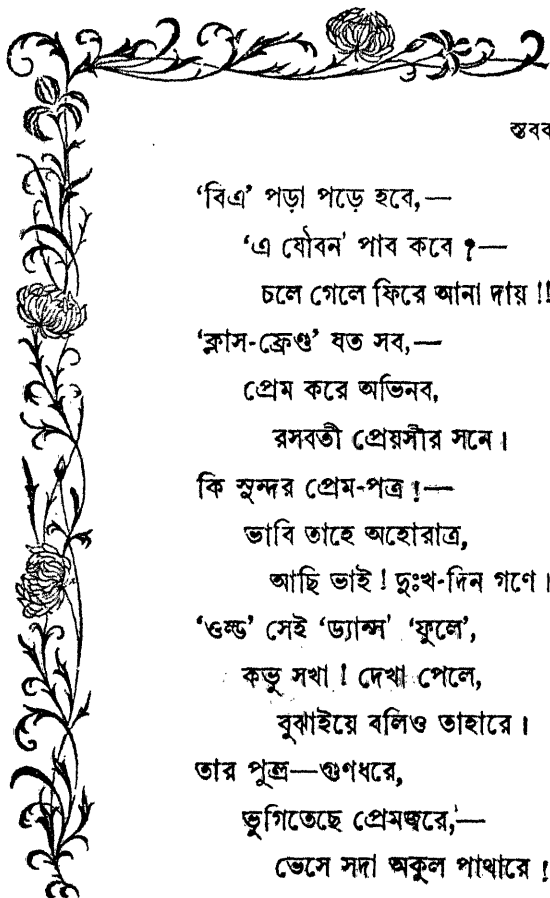 স্তবক
‘বিএ’ পড়া পড়ে হবে,—
‘এ যৌবন’ পাব কবে ?—
চলে গেলে ফিরে আনা দায় !!
‘ক্লাস-ফ্রেণ্ড’ যত সব,—
প্রেম করে অভিনব,
রসবতী প্রেয়সীর সনে ।
কি সুন্দর প্রেম-পত্র !—
ভাবি তাহে অহোরাত্র,
আছি ভাই ! দুঃখ-দিন গণে ।
‘ওল্ড’ সেই ‘ড্যান্স’ ‘ফুলে’,
কভু সখা ! দেখা পেলে,
বুঝাইয়ে বলিও তাহারে ।
তার পুত্র—গুণধরে,
ভুগিতেছে প্রেমজ্বরে,—
ভেসে সদা অকুল পাথারে !